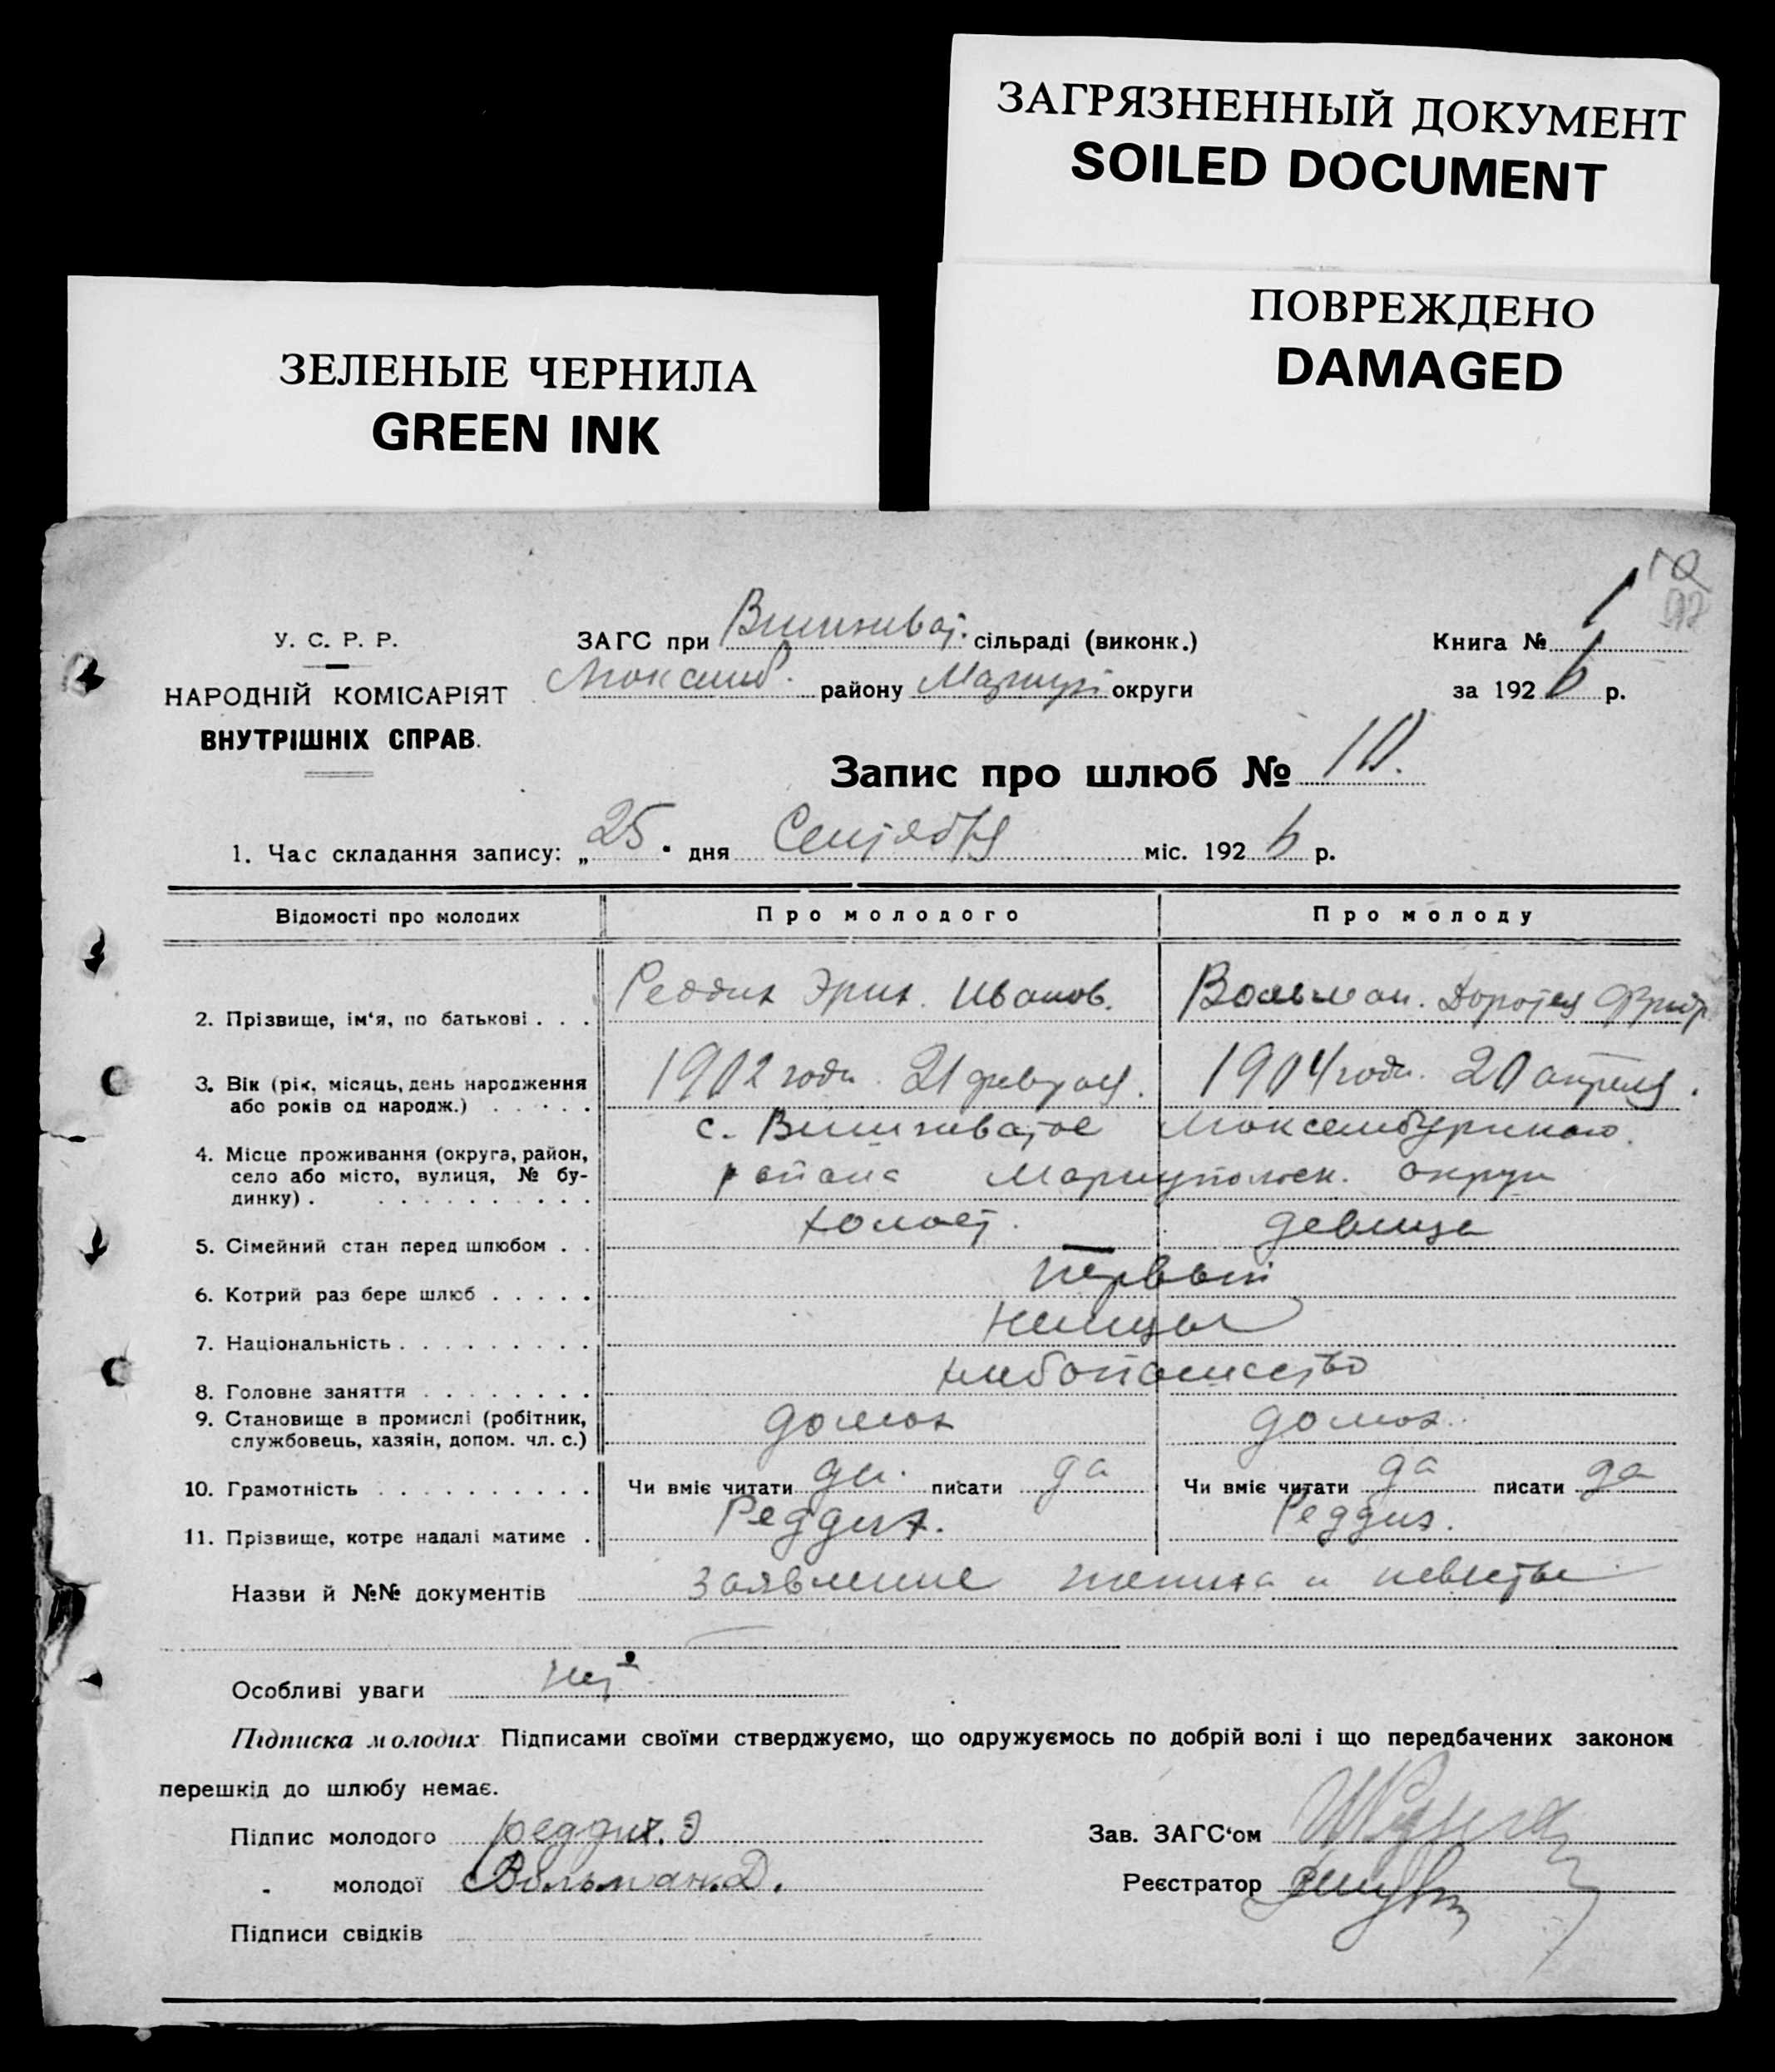 ЗАГРЯЗНЕННЫЙ ДОКУМЕНТ
SOILED DOCUMENT
ПОВРЕЖДЕНО
DAMAGED
ЗЕЛЕНЫЕ ЧЕРНИЛА
GREEN INK
У. С. Р. Р.
НАРОДНІЙ КОМІСАРІЯТ
ВНУТРІШНІХ СПРАВ.
ЗАГС при Вишневат. сільраді (виконк.)
Люксемб. району Маріуп округи
Книга № 1
за 1926 р.
Запис про шлюб № 10.
1. Час складання запису: „25" дня Сентября міс. 1926 р.
Відомості про молодих Про молодого Про молоду
2. Прізвище, ім'я, по батькові . . . Реддих Эрих. Иванов. Вольман. Доротея Фридр.
3. Вік (рік, місяць, день народження 1902 года. 21 февраля. 1904 года. 20 апреля.
або років од народж.) . . . . .
с. Вишневатое Люксембургского.
4. Місце проживання (округа, район, района Мариупольск. округи
село або місто, вулиця, № бу-
динку) . . . . . . . . . .
5. Сімейний стан перед шлюбом . . холост. девица
6. Котрий раз бере шлюб . . . . . первый
7. Національність . . . . . . . . . немцы
8. Головне заняття . . . . . . . . хлебопашество
9. Становище в промислі (робітник, домох домох.
службовець, хазяін, допом. чл. с.)
10. Грамотність . . . . . . . . . . Чи вміє читати да. писати да Чи вміє читати да писати да
11. Прізвище, котре надалі матиме . Реддих. Реддих.
Назви й №№ документів заявление жениха и невесты
Особливі уваги нет
Підписка молодих Підписами своїми стверджуємо, що одружуємось по добрій волі і що передбачених законом
перешкід до шлюбу немає.
Підпис молодого реддих. Э
Зав. ЗАГС'ом
" молодої Вольман. Д.
Реєстратор
Підписи свідків